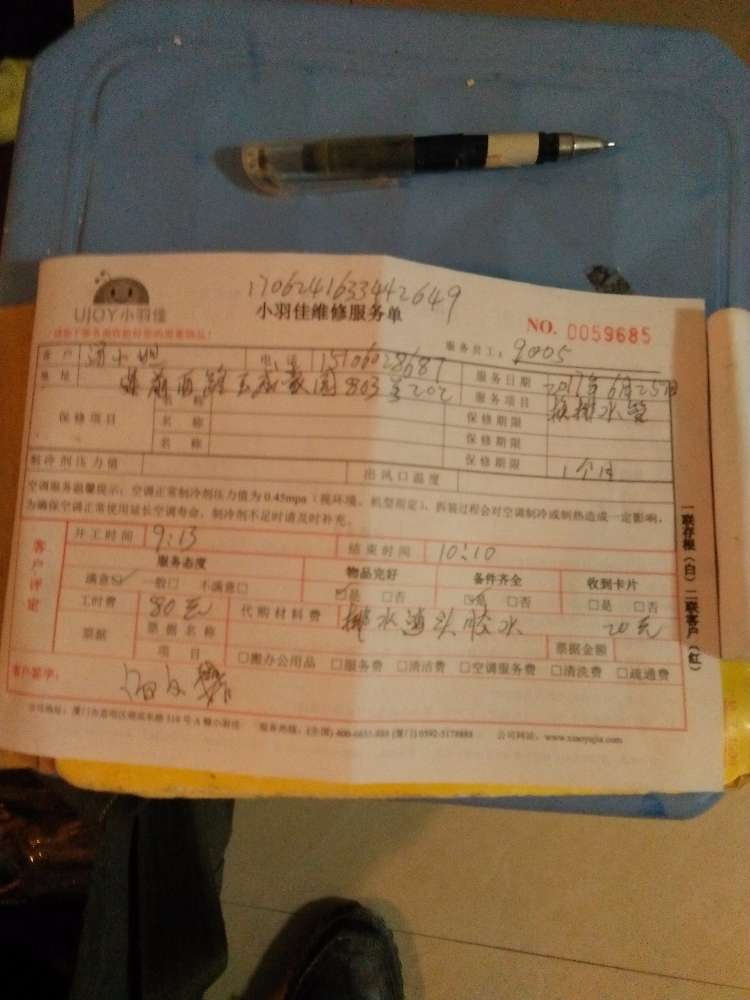 1706241633442649
UJOY小羽佳
小羽佳维修服务单
NO. 0059685
服务员工: 9005
客 户 电 话 15106028687 服务日期 2017年6月25日
地 址 803室202 服务项目 换排水管
保修项目 名 称 保修期限
名 称 保修期限
名 称 保修期限 1个月
制冷剂压力值 出风口温度
空调服务温馨提示:空调正常制冷剂压力值为0.45mpa(视环境、机型而定),拆装过程会对空调制冷或制热造成一定影响,
为确保空调正常使用延长空调寿命,制冷剂不足时请及时补充。
一联存根(白)二联客户(红)
开工时间 9:13 结束时间 10:10
客户评定
服务态度 物品完好 备件齐全 收到卡片
满意☑ 一般□ 不满意□ ☑是 □否 ☑是 □否 □是 □否
工时费 80元 代购材料费 排水 胶水 20元
票据 票据名称 票据金额
项 目 □搬办公用品 □服务费 □清洁费 □空调服务费 □清洗费 □疏通费
客户签字:
服务热线: 公司网址: www.xiaoyujia.com